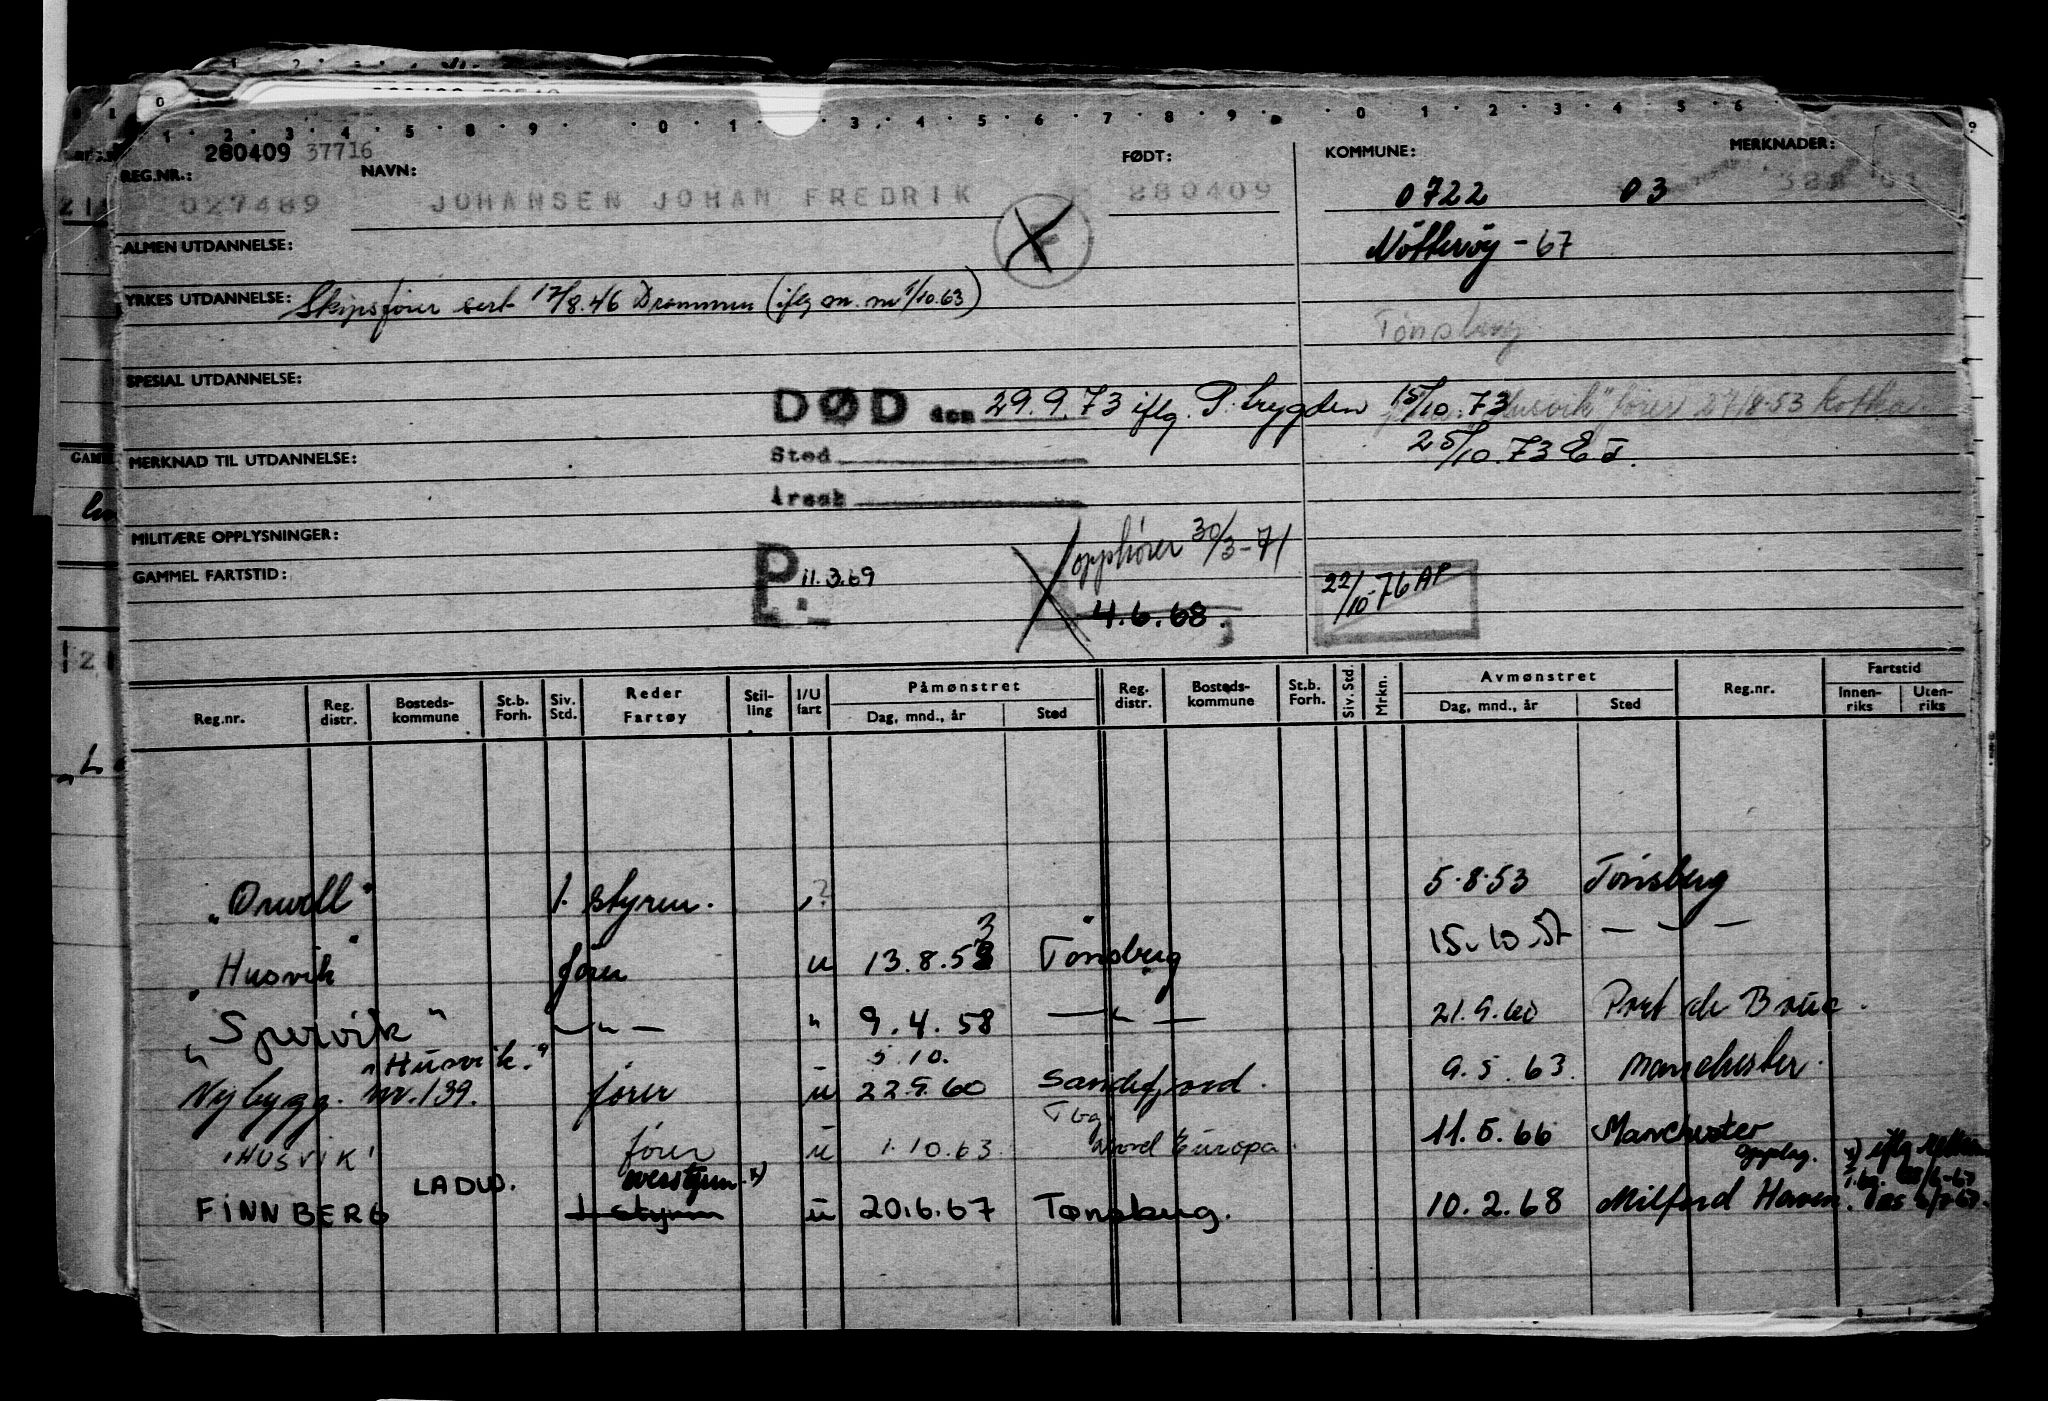 280409 37716
REG.NR.: NAVN: FØDT: KOMMUNE: MERKNADER:
027489 JOHANSEN JOHAN FREDRIK 280409 0722 03
F
ALMEN UTDANNELSE: Nötteröy - 67
YRKES UTDANNELSE: Skipsfører sert 17/8.46 Drammen (iflg an. m 1/10.63)
Tönsberg
SPESIAL UTDANNELSE:
DØD den 29.9.73 iflg. P. trygden 15/10.73
"Husvik" fører 27/8-53 Kotka
Sted
25/10.73 E
MERKNAD TIL UTDANNELSE:
Årsak
MILITÆRE OPPLYSNINGER:
opphører 30/3-71
GAMMEL FARTSTID:
P 11.3.69
4.6.68.
22/10-76 AP
Reg.nr. Reg. distr. Bosteds-kommune St.b. Forh. Siv. Std. Reder Fartøy Stil-ling I/U fart Påmønstret Dag, mnd., år Sted Reg. distr. Bosteds-kommune St.b. Forh. Siv. Std. Mrkn. Avmønstret Dag, mnd., år Sted Reg.nr. Fartstid Innen-riks Uten-riks
"Orwell" 1. styrm. ? 5.8.53 Tönsberg
"Husvik" fører u 13.8.53 Tönsberg 15.10.57 — " —
"Spervik" — " — " 9.4.58 — " — 21.9.60 Port de Bouc.
"Husvik." 5.10.
Nybygg. nr. 139. fører u 22.9.60 Sandefjord. 9.5.63. Manchester.
Tbg
"HUSVIK" fører u 1.10.63 Nord Europa. 11.5.66 Manchester
opplag.
LADW. overstyrm. x)
FINNBERG 1 styrm u 20.6.67 Tønsberg. 10.2.68 Milford Haven.